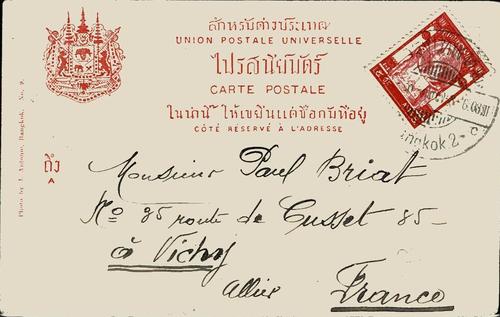 สำหรับต่างประเทศ
UNION POSTALE UNIVERSELLE
ไปรสนียบัตร์
CARTE POSTALE
ในน่านี้ ให้เขียนแต่ชื่อกับที่อยู่
CÔTÉ RÉSERVÉ À L'ADRESSE
ถึง
A
Monsieur Paul Briat
No 85 route de Cusset 85
à Vichy
Allier
France
Photo by J. Antonio, Bangkok. No. 9.
ngkok 2